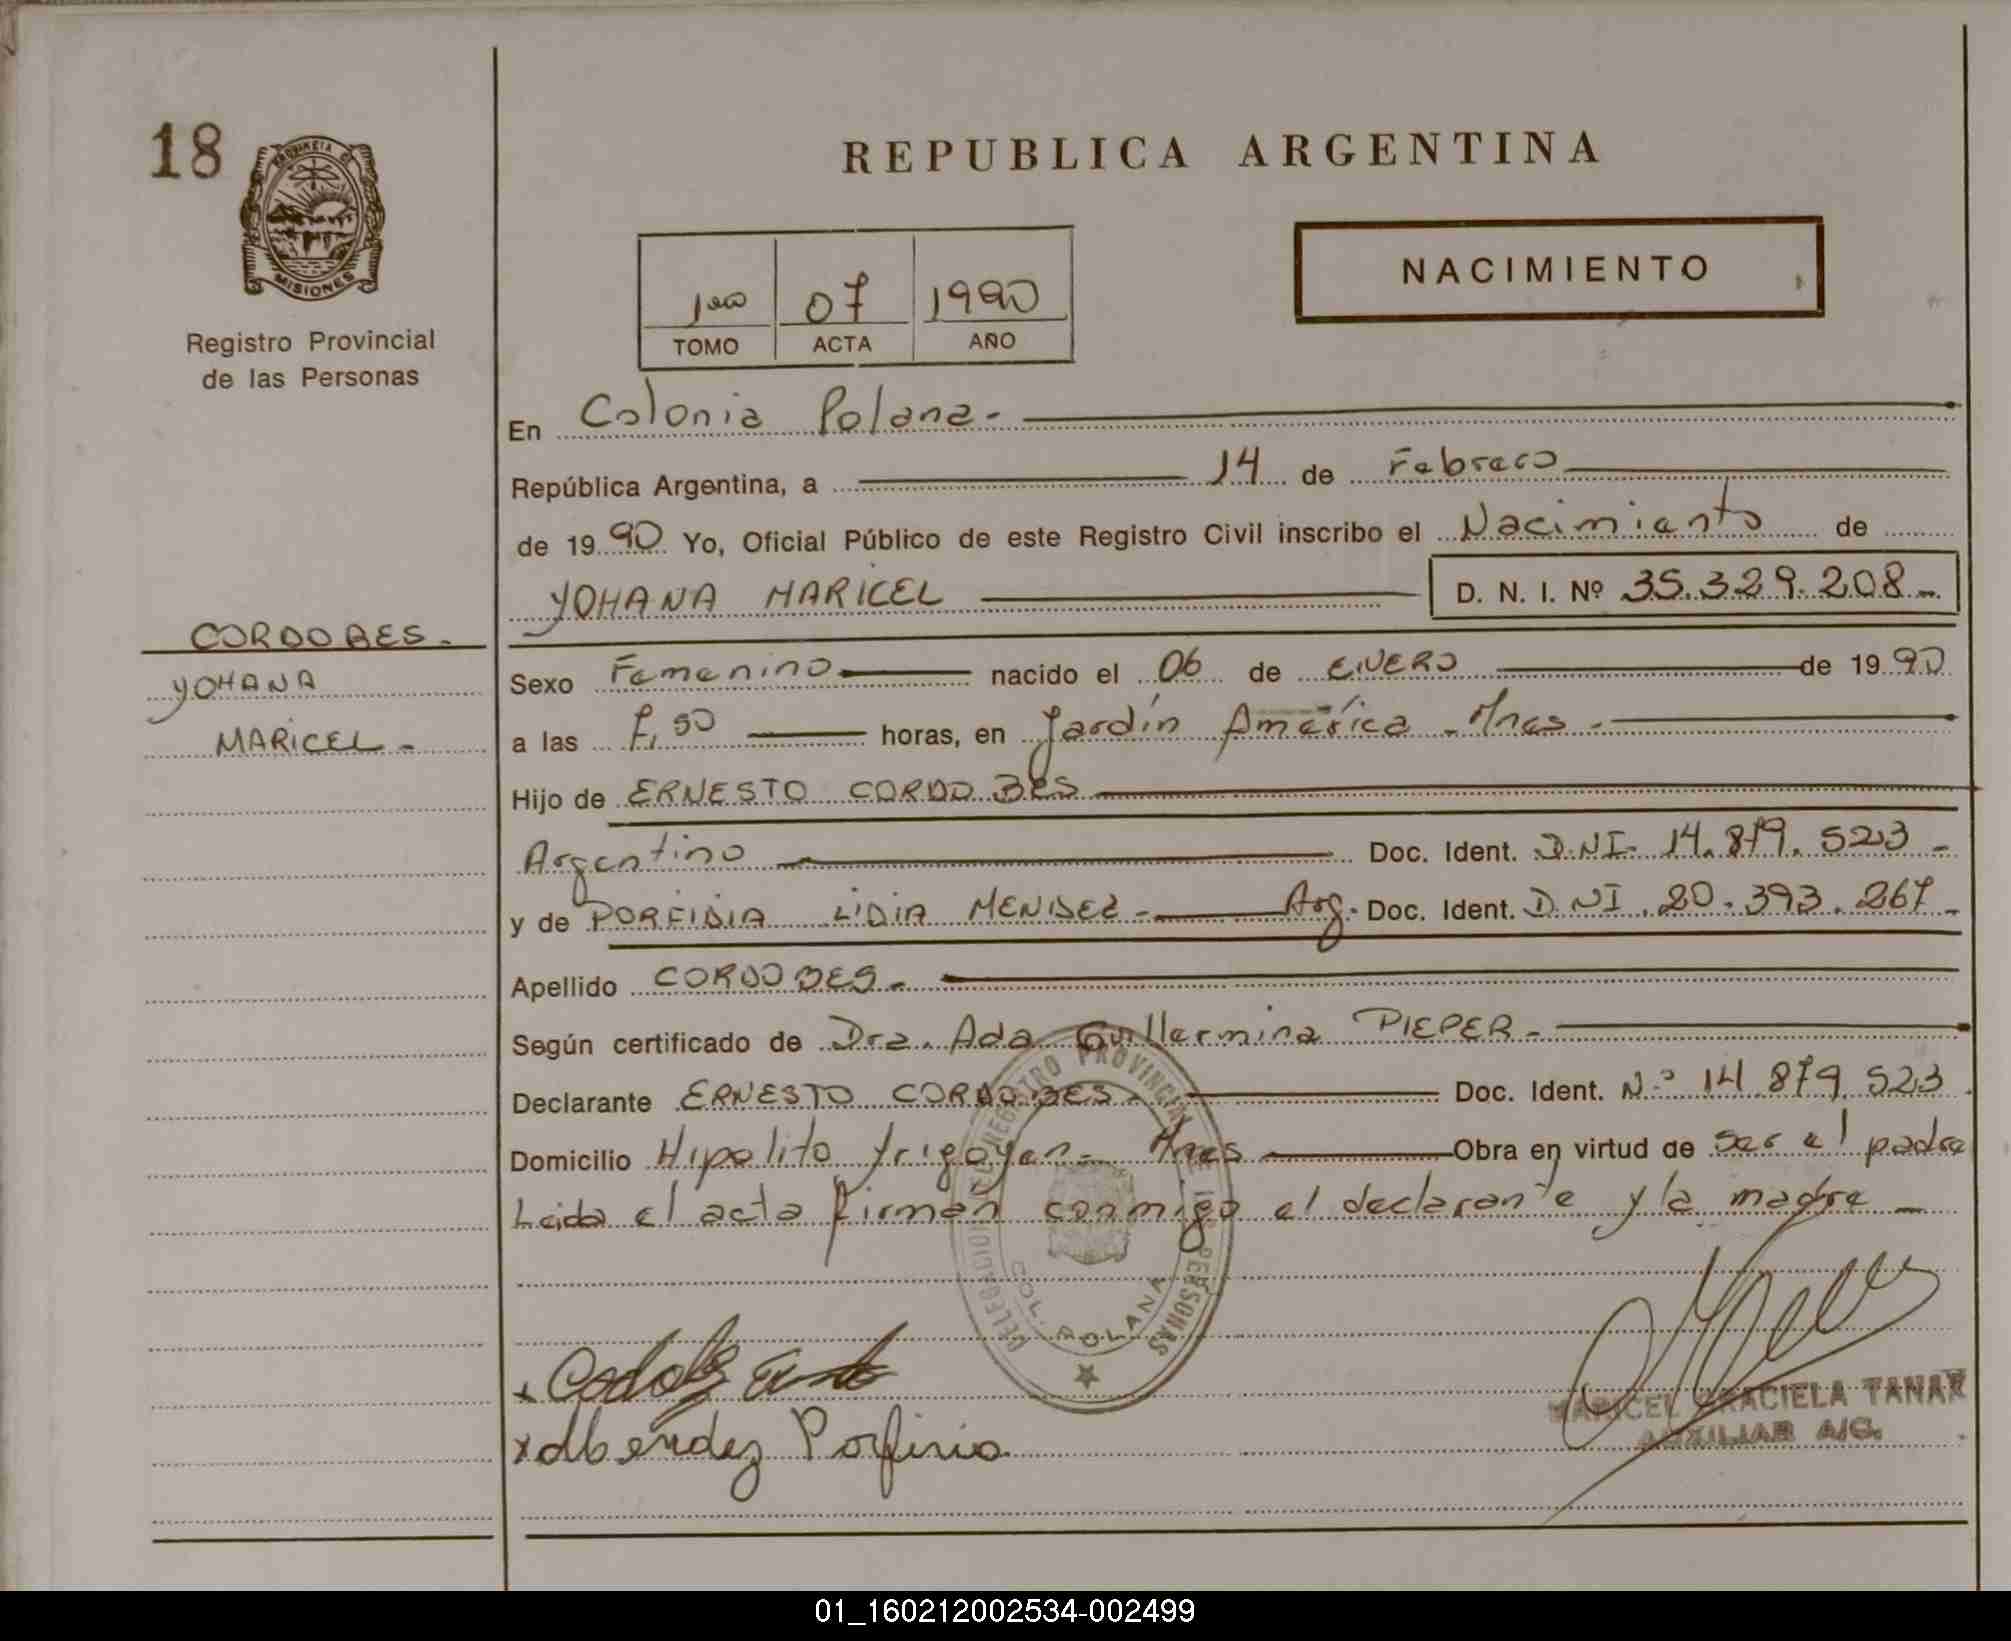 18
PROVINCIA DE
MISIONES
Registro Provincial
de las Personas
CORDOBES.
YOHANA
MARICEL -
REPUBLICA ARGENTINA
NACIMIENTO
1ero 07 1990
TOMO ACTA AÑO
En Colonia Polana -
República Argentina, a 14 de Febrero
de 1990 Yo, Oficial Público de este Registro Civil inscribo el Nacimiento de
YOHANA MARICEL D. N. I. Nº 35.329.208 -
Sexo Femenino nacido el 06 de ENERO de 1990
a las 7,50 horas, en Jardín América - Mnes -
Hijo de ERNESTO CORDOBES
Argentino Doc. Ident. D.NI. 14.879.523 -
y de PORFIDIA LIDIA MENDEZ - Arg. Doc. Ident. D.NI. 20.393.267 -
Apellido CORDOBES -
Según certificado de Dra. Ada Guillermina PIEPER -
Declarante ERNESTO CORDOBES - Doc. Ident. Nº 14.879.523
Domicilio Hipolito Yrigoyen - Mnes Obra en virtud de ser el padre
Leida el acta firman conmigo el declarante y la madre -
DELEGACION REGISTRO PROVINCIAL DE LAS PERSONAS
COL. POLANA
x Mendez Porfiria
MARICEL GRACIELA TANAR
AUXILIAR A/C.
01_160212002534-002499